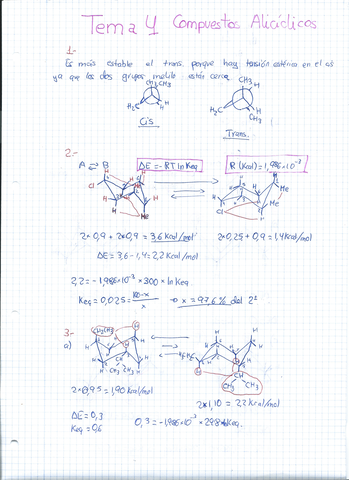 Tema 4 Compuestos Alicíclicos
1-
Es mais estable el trans, porque hay torsión estérica en el cis
ya que los dos grupos metilo están cerca.
CH3 CH3
H3C H
H
Cis
CH3
H
H3C H
CH3
Trans
2-
A ⇌ B
ΔE = -RT ln Keq
R (Kcal) = 1,986×10⁻³
Cl H H Me
Cl H Me
2×0,9 + 2×0,9 = 3,6 Kcal/mol
2×0,25 + 0,9 = 1,4 Kcal/mol
ΔE = 3,6 - 1,4 = 2,2 Kcal/mol
2,2 = -1,986×10⁻³ × 300 × ln Keq
Keq = 0,025 = 100-x / x → x = 97,6% del 2º
3-
a)
CH3 CH3
2×0,95 = 1,90 Kcal/mol
CH
CH3 CH3
2×1,10 = 2,2 Kcal/mol
ΔE = 0,3
Keq = 0,6
0,3 = -1,986×10⁻³ × 298 × ln Keq.